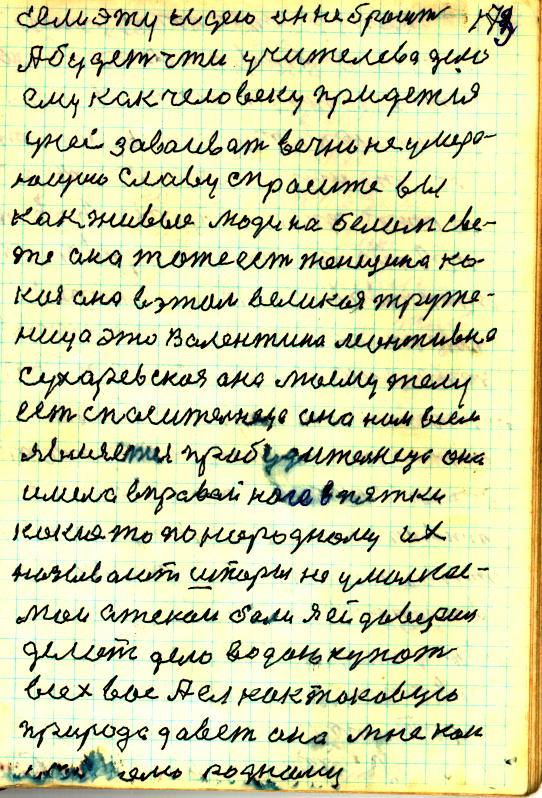 173
если эту идею он не бросит
А будет чти учителева дело
ему как человеку придется
у ней заваиват вечно не умера-
ющую славу спросите вы
как живые люди на белом све-
те она тоже ест женщина ка-
кая она в этом великая труже-
ница это Валентина леонтивна
сухаревская она моему телу
ест спасителнеца она нам всем
является прабудителнеца она
имела в правой ноге в пятки
какието по народному их
называют шпоры не умолкае-
мои атскои боли я ей даверил
делат дело водою купат
всех вас А ей как таковую
природа давет она мне как
ему родному